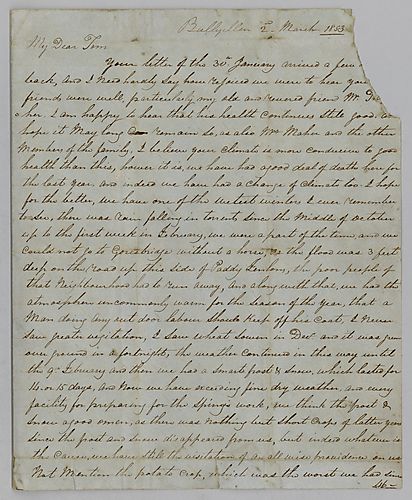 Ballyellen 2- March 1853
My Dear Tom
Your letter of the 30th January arrived a few
back, and I need hardly say how rejoiced we were to hear your
friends were well, particularly my old and revered friend Mr
her, I am happy to hear that his health continues still good. we
hope it May long remain so, as also Mrs Maher and the other
Members of the family, I believe your climate is more conducive to good
health than this, however it is, we have had a good deal of deaths here for
the last year. and indeed we have had a change of climate too. I hope
for the better, we have one of the wettest winters I ever remember
to see, there was rain falling in torrents since the Middle of October
up to the first week in February, we were a part of the time, and we
could not go to Goresbridge without a horse, as the flood was 3 feet
deep on the road up this side of Paddy Lenlons, the poor people of
that Neighbourhood had to run away, and along with that, we had the
atmosphere uncommonly warm for the Season of the year, that a
Man doing any out door labour should keep off his coat, I Never
saw greater vegitation, I saw wheat sowen in Decr and it was green
over ground in a fortnight, the weather continued in this way until
the 9th February and then we had a smart frost & snow, which lasted for
14 or 15 days, and Now we have exceeding fine dry weather, and every
facility for preparing for the Springs work, we think the frost &
Snow a good omen, as there was nothing but Short Crops of latter years
since the frost and snow disappeared from us, but indeed whatever is
the Cause, we have still the visitation of an all wise providence on us
Not Mention the potato Crop, which was the worst we had sinc